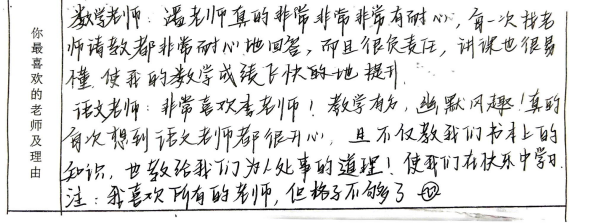 你最喜欢的老师及理由
数学老师：潘老师真的非常非常非常有耐心，每一次找老
师请教都非常耐心地回答，而且很负责任，讲课也很易
懂，使我的数学成绩飞快的地提升．
语文老师：非常喜欢李老师！教学有方，幽默风趣！真的
每次想到语文老师都很开心，且不仅教我们书本上的
知识，也教给我们为人处事的道理！使我们在快乐中学习．
注：我喜欢所有的老师，但格子不够了